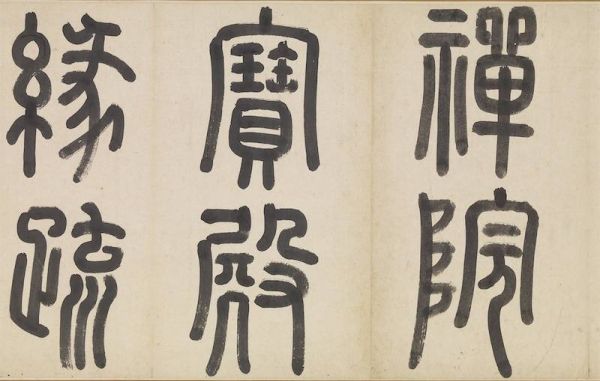 禪院
寶殿
緣疏